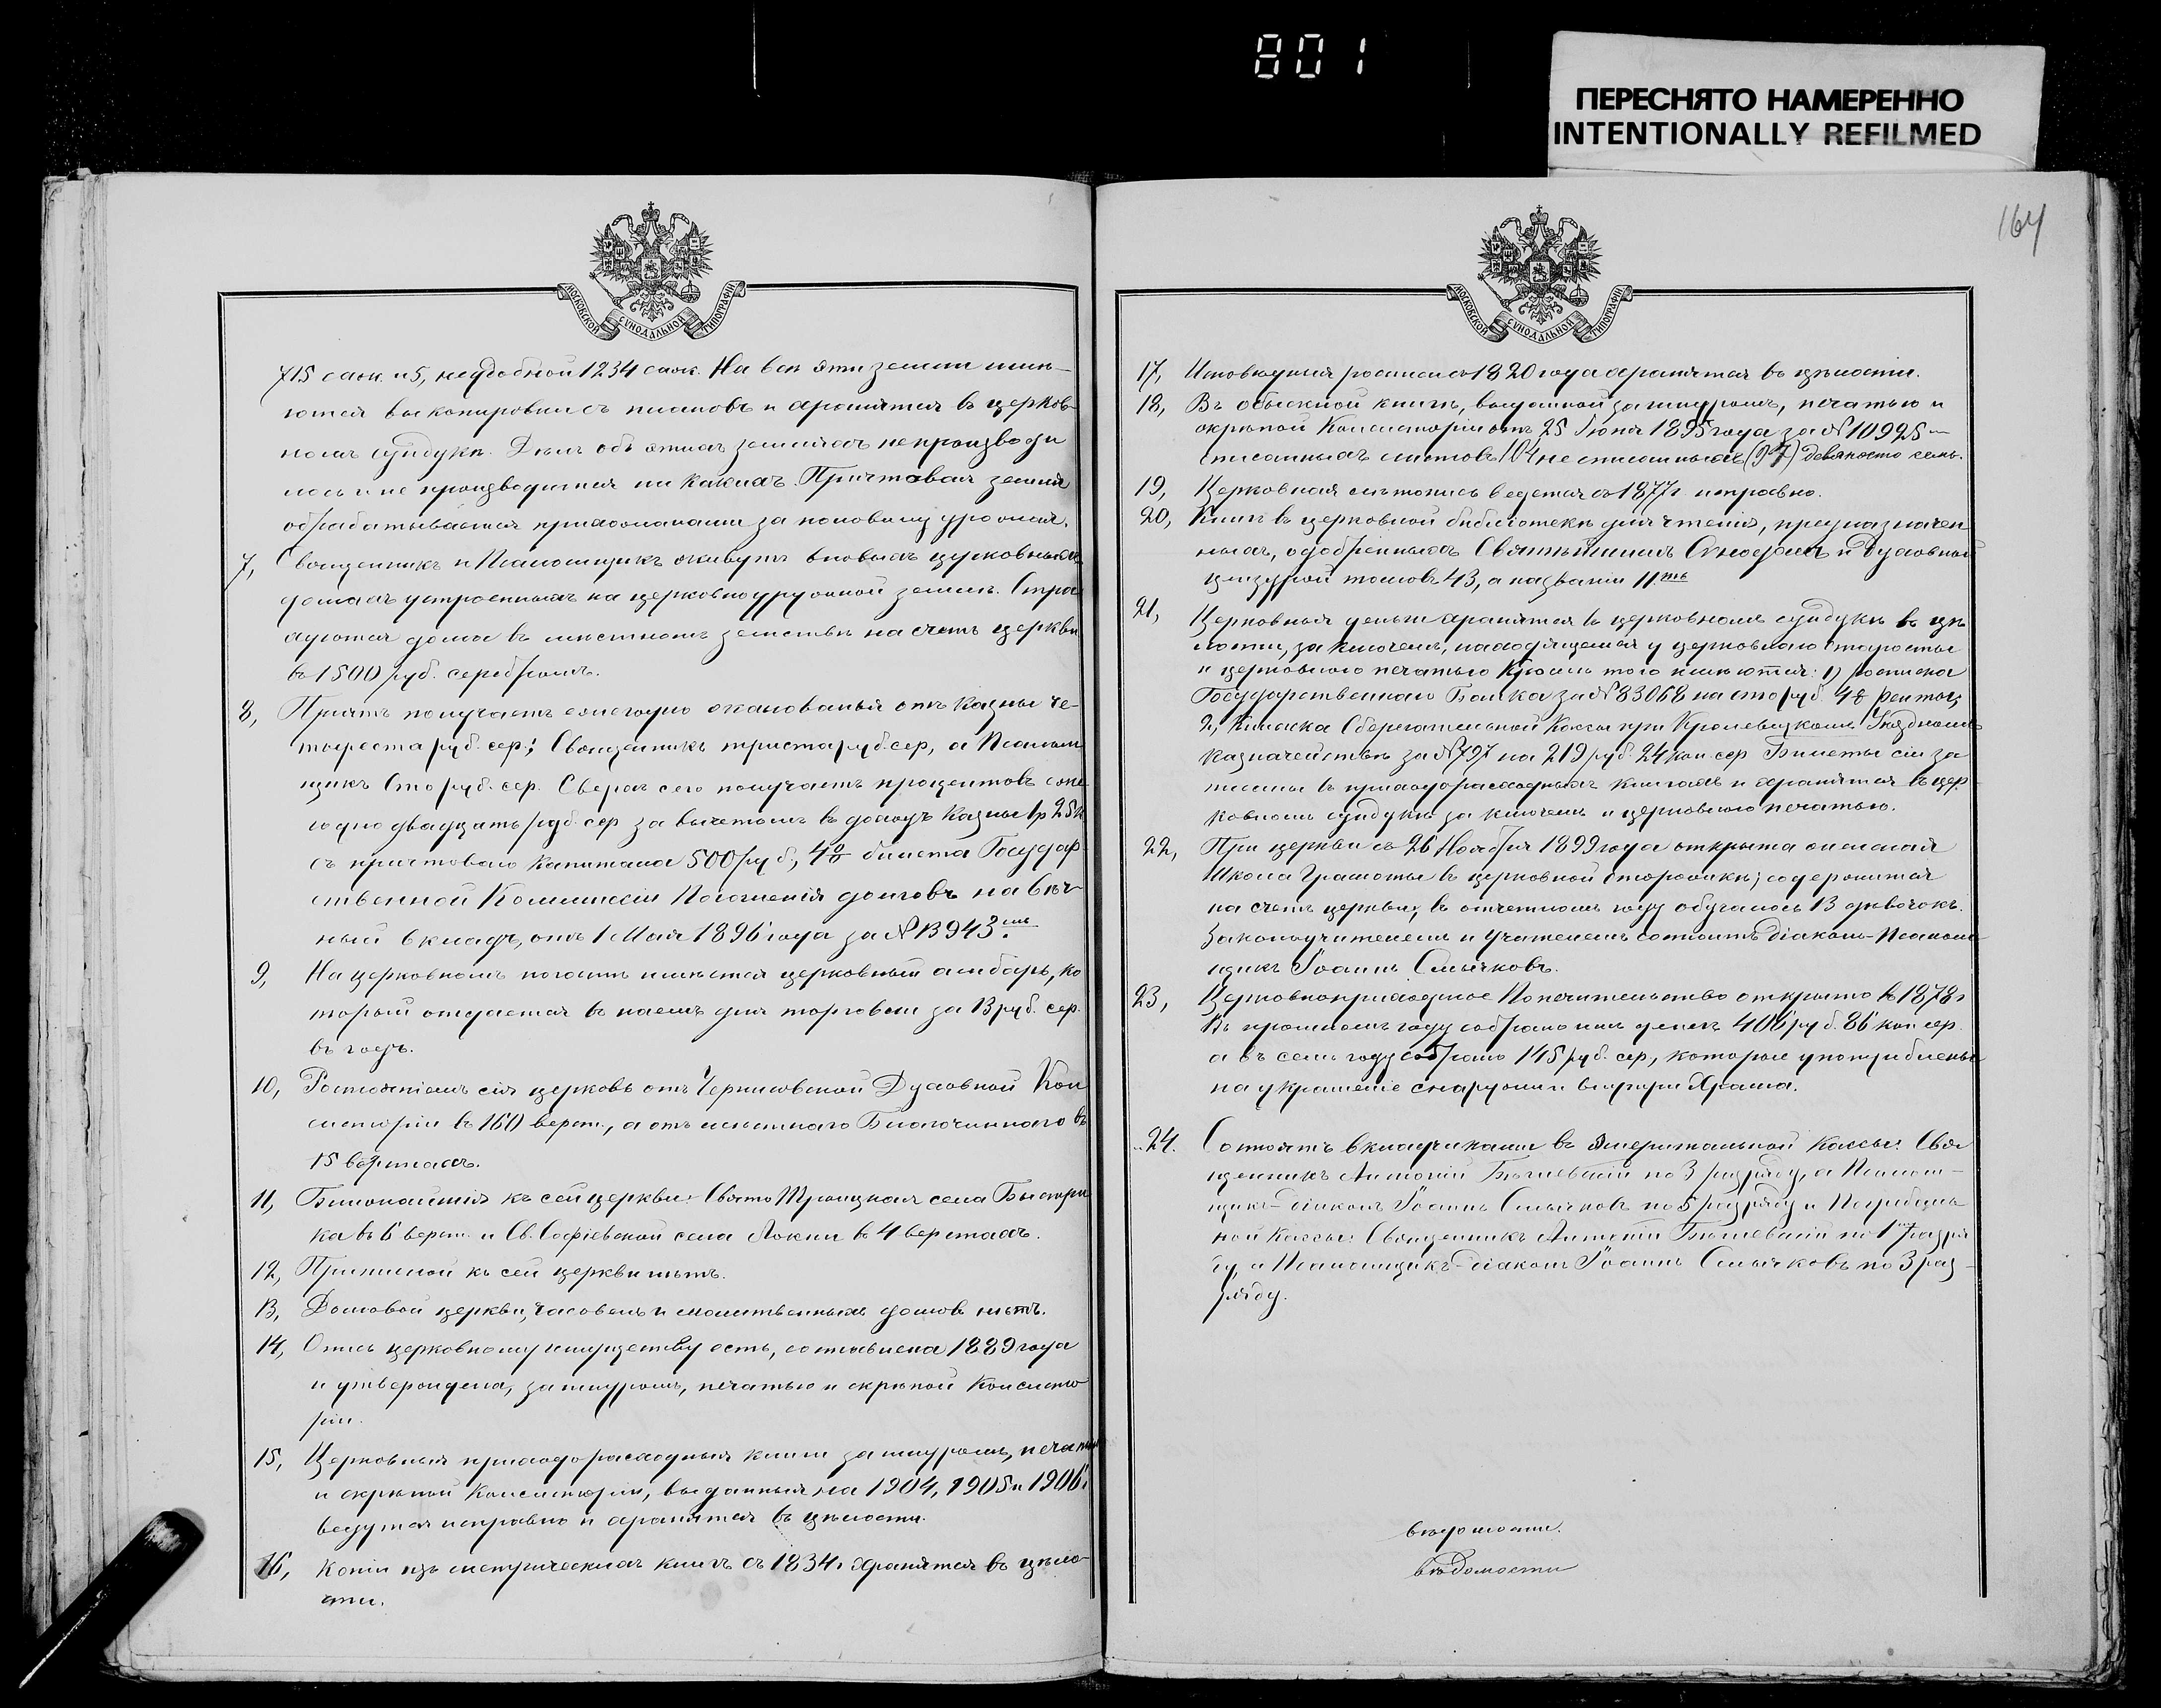 801
ПЕРЕСНЯТО НАМЕРЕННО
INTENTIONALLY REFILMED
164
МОСКОВСКОЙ СѴНОДАЛЬНОЙ ТИПОГРАФІИ
715 саж. и 5, неудобной 1234 саж. На всѣ эти земли имѣ-
ются выкопировки съ плановъ и хранятся въ церков-
номъ сундукѣ. Дѣлъ объ этихъ земляхъ не производи
лось и не производится ни какихъ. Причтовая земля
обрабатывается прихожанами за половину урожая.
7, Священникъ и Псаломщикъ живутъ въ новыхъ церковныхъ
домахъ устроенныхъ на церковноуружной землѣ. Страх
хуются дома въ мѣстномъ земствѣ на счетъ церкви
въ 1500 руб. серебромъ.
8, Причтъ получаетъ ежегодно жалованья отъ казны че-
тыреста руб. сер.; Священникъ триста руб. сер, а Псалом
щикъ Сто руб. сер. Сверхъ сего получаетъ процентовъ еже
годно двадцать руб. сер за вычетомъ въ доходъ казны 1р 25к
съ причтоваго капитала 500 руб., 4% билета Государ
ственной Коммиссіи Погашенія долговъ на вѣч-
ный вкладъ, отъ 1 Мая 1896 года за № 13943.
9, На церковномъ погостѣ имѣется церковный амбаръ, ко
торый отдается въ наемъ для торговли за 13 руб. сер.
въ годъ.
10, Разстояніемъ сія церковь отъ Черниговской Духовной Кон
систоріи въ 160 верст., а отъ мѣстнаго Благочиннаго въ
15 верстахъ.
11, Ближайшія къ сей церкви: Свято Троицкая села Быстри
ка въ 6 верст. и Св. Софіевской села Локни въ 4 верстахъ.
12, Приписной къ сей церкви нѣтъ.
13, Домовой церкви, часовень и молитвенныхъ домовъ нѣтъ.
14, Опись церковному имуществу есть, составлена 1889 года
и утверждена, за шнуромъ, печатью и скрѣпой Консисто
ріи.
15, Церковныя приходорасходныя книги за шнуромъ, печатью
и скрѣпой Консисторіи, выданныя на 1904, 1905 и 1906 г
ведутся исправно и хранятся въ цѣлости.
16, Копіи изъ метрическихъ книгъ съ 1834 г хранятся въ цѣло-
сти.
МОСКОВСКОЙ СѴНОДАЛЬНОЙ ТИПОГРАФІИ
17, Исповѣдныя росписи съ 1820 года хранятся въ цѣлости.
18, Въ обыскной книгѣ, выданной за шнуромъ, печатью и
скрѣпой Консисторіи отъ 25 Іюня 1895 года за № 10925
списанныхъ листовъ 104 не списанныхъ (97) девяносто семь.
19, Церковная лѣтопись ведется съ 1877 г. исправно.
20, Книгъ въ церковной библіотекѣ для чтенія, предназначен
ныхъ, одобренныхъ Святѣйшимъ Сѵнодомъ и Духовной
цензурой томовъ 43, а названій 11.
21, Церковныя деньги хранятся въ церковномъ сундукѣ въ цѣ
лости, за ключемъ, находящемся у церковнаго старосты
и церковною печатью Кромѣ того имѣются: 1) росписка
Государственнаго Банка за № 83068 на сто руб. 4% ренты,
2, Книжка Сберегательной Кассы при Кролевецкомъ Уѣздномъ
казначействѣ за № 797 на 219 руб. 24 коп. сер Билеты сіи за
писаны въ приходорасходныхъ книгахъ и хранятся въ цер
ковномъ сундукѣ за ключемъ и церковною печатью.
22, При церкви съ 26 Ноября 1899 года открыта женская
Школа Грамоты въ церковной сторожкѣ; содержится
на счетъ церкви, въ отчетномъ году обучалось 13 дѣвочекъ.
Законоучителемъ и Учителемъ состоитъ діаконъ-Псалом
щикъ Іоаннъ Смычковъ.
23, Церковноприходское Попечительство открыто въ 1878 г
Въ прошломъ году собрано имъ денегъ 406 руб. 86 коп сер.
а въ семъ году собрано 145 руб. сер, которые употреблены
на украшеніе снаружи и внутри Храма.
24. Состоятъ вкладчиками въ Эмеритальной кассы: Свя
щенникъ Антоній по 3 разряду, а Псалом-
щикъ-діаконъ Іоаннъ Смычковъ по 5 разряду и Погребаль
ной Кассы: Священникъ Антоній по 1 разря
ду, а Псаломщикъ-діаконъ Іоаннъ Смычковъ по 3 раз-
ряду.
вѣдомости.
вѣдомости